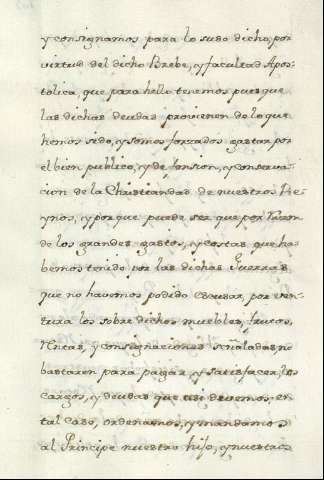 y consignamos para lo suso dicho, por
virtud del dicho Brebe, y facultad Apos-
tolica, que para hello tenemos pues que
las dichas deudas provienen de lo que
hemos sido, y somos forzados gastar por
el bien publico, y defension, y conserva-
cion de la Christiandad de nuestros Re-
ynos, y por que puede ser que por razon
de los grandes gastos, y costas que ha-
bemos tenido por las dichas Guerras
que no havemos podido escusar, por ven-
tura los sobre dichos muebles, frutos,
Rentas, y consignaciones señaladas no
bastaren para pagar, y satisfacer los
cargos, y deudas que asi devemos, en
tal caso, ordenamos, y mandamos
al Principe nuestro hijo, y nuestros